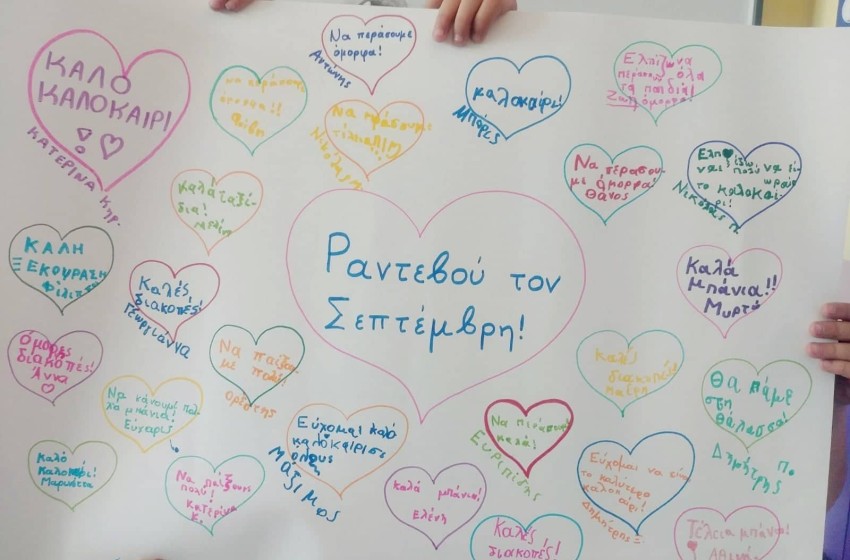 ΚΑΛΟ
ΚΑΛΟΚΑΙΡΙ
!
ΚΑΤΕΡΙΝΑ Κηρ.
Να περάσουμε
όμορφα!!
Φοίβη
Να περάσουμε
όμορφα!
Αντώνης
Να πράσουμε
τέλεια!!!
Νικόλας Μ
καλοκαίρι!
Μπάρες
Ελπίζω να
περάσουν όλα
τα παιδιά
όμορφα!
Ζωή
Να περάσου-
με όμορφα!
Θάνος
το καλοκαί-
ρι!
Νικόλας Π
καλά ταξί-
δια!
Μελίνα
ΚΑΛΗ
ΞΕΚΟΥΡΑΣΗ
Φίλιππος
Καλές
διακοπές!
Γεωργιάννα
Ραντεβού τον
Σεπτέμβρη!
Καλά
μπάνια!!
Μυρτώ
Όμορφες
διακοπές!
Άννα
Να παίξου-
με πολύ!
Ορέστης
Καλές
διακοπές
Θα πάμε
στη
θάλασσα!
Δημήτρης Πο
Να κάνουμε πολ-
λά μπάνια!
Εύχαρις
Εύχομαι καλό
καλοκαίρι σε
όλους
Μάξιμος
Να περάσουμε
καλά!
Ευριπίδης
Καλό
καλοκαίρι!
Μαρινέττα
Να παίξουμε
πολύ!
Κατερίνα
Κ.
καλά μπάνια!
Ελένη
Εύχομαι να είναι
το καλύτερο
καλοκαίρι!
Δημήτρης Ξ
Καλές
διακοπές!
Τέλεια μπάνια!